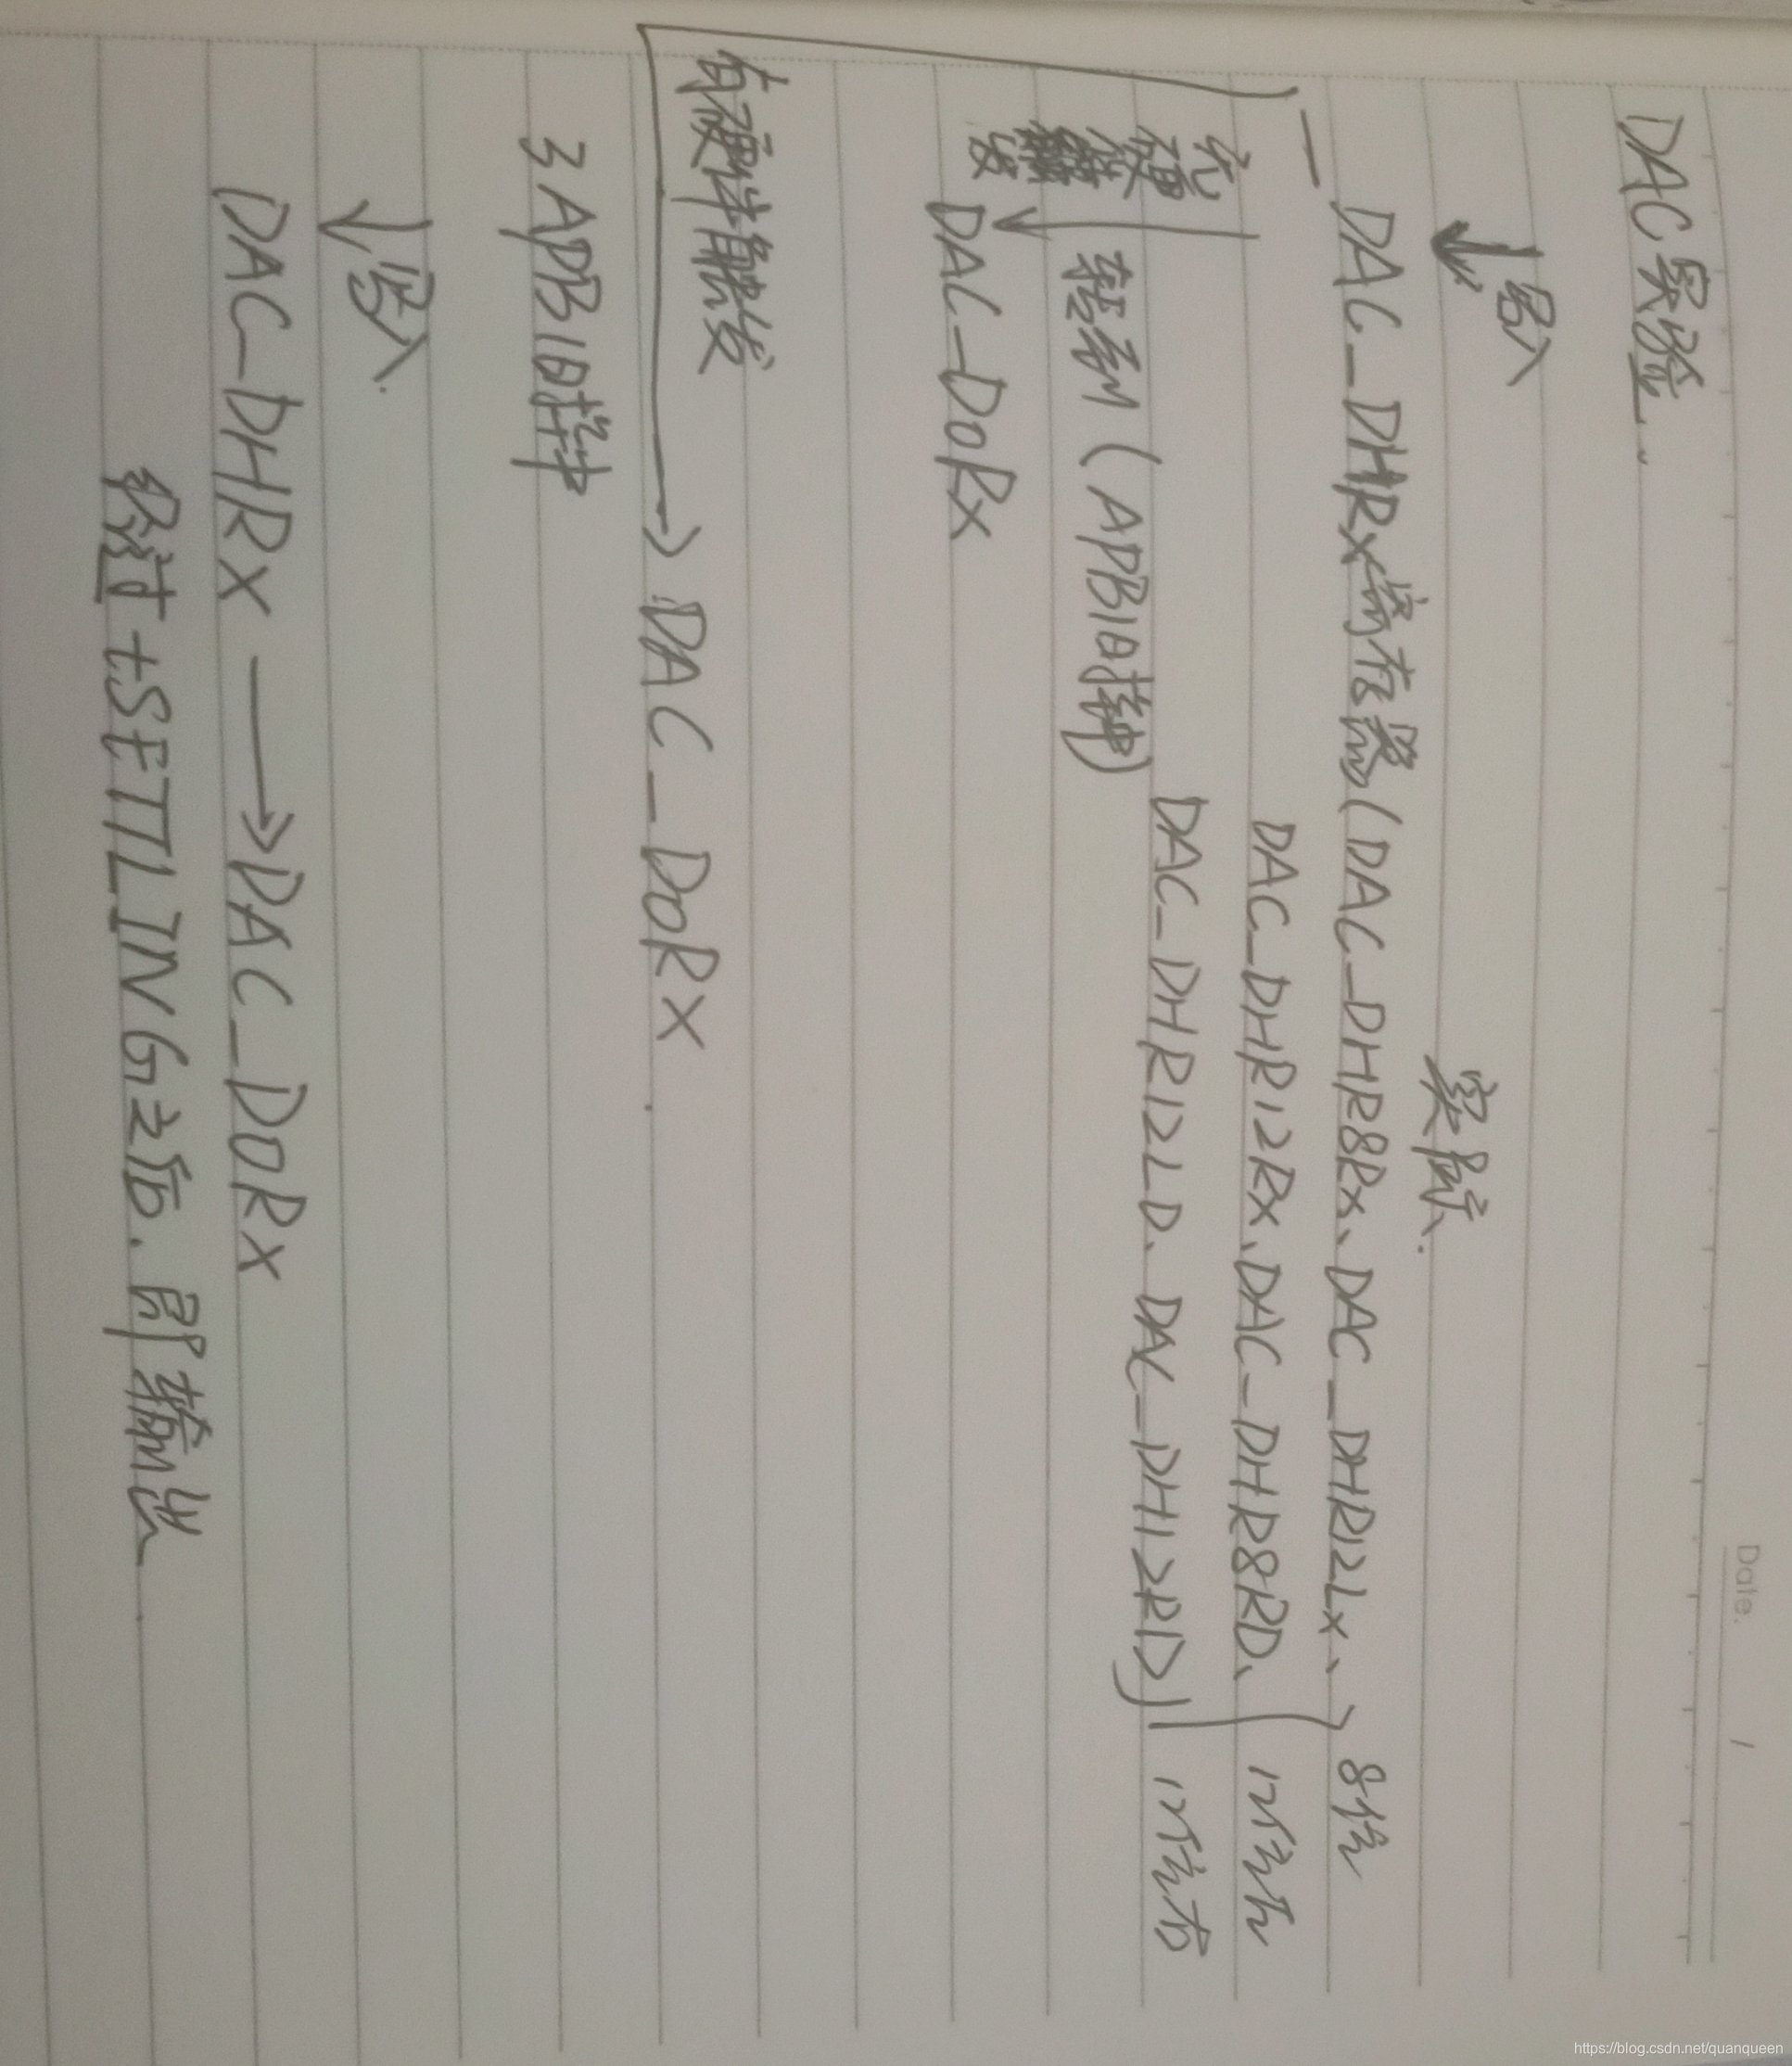 Date. /
DAC实验..
写入
实际.
DAC_DHRx寄存器(DAC_DHR8Rx、DAC_DHR12Lx、 8位
DAC_DHR12Rx、DAC_DHR8RD、 12位左
DAC_DHR12LD、DAC_DH12RD) 12位右
无硬件 发
转移(APB1时钟)
DAC_DoRx
有硬件触发
DAC_DoRx
3APB1时钟
写入.
DAC_DHRx DAC_DoRx
经过tSETTLING之后.即输出
https://blog.csdn.net/quanqueen